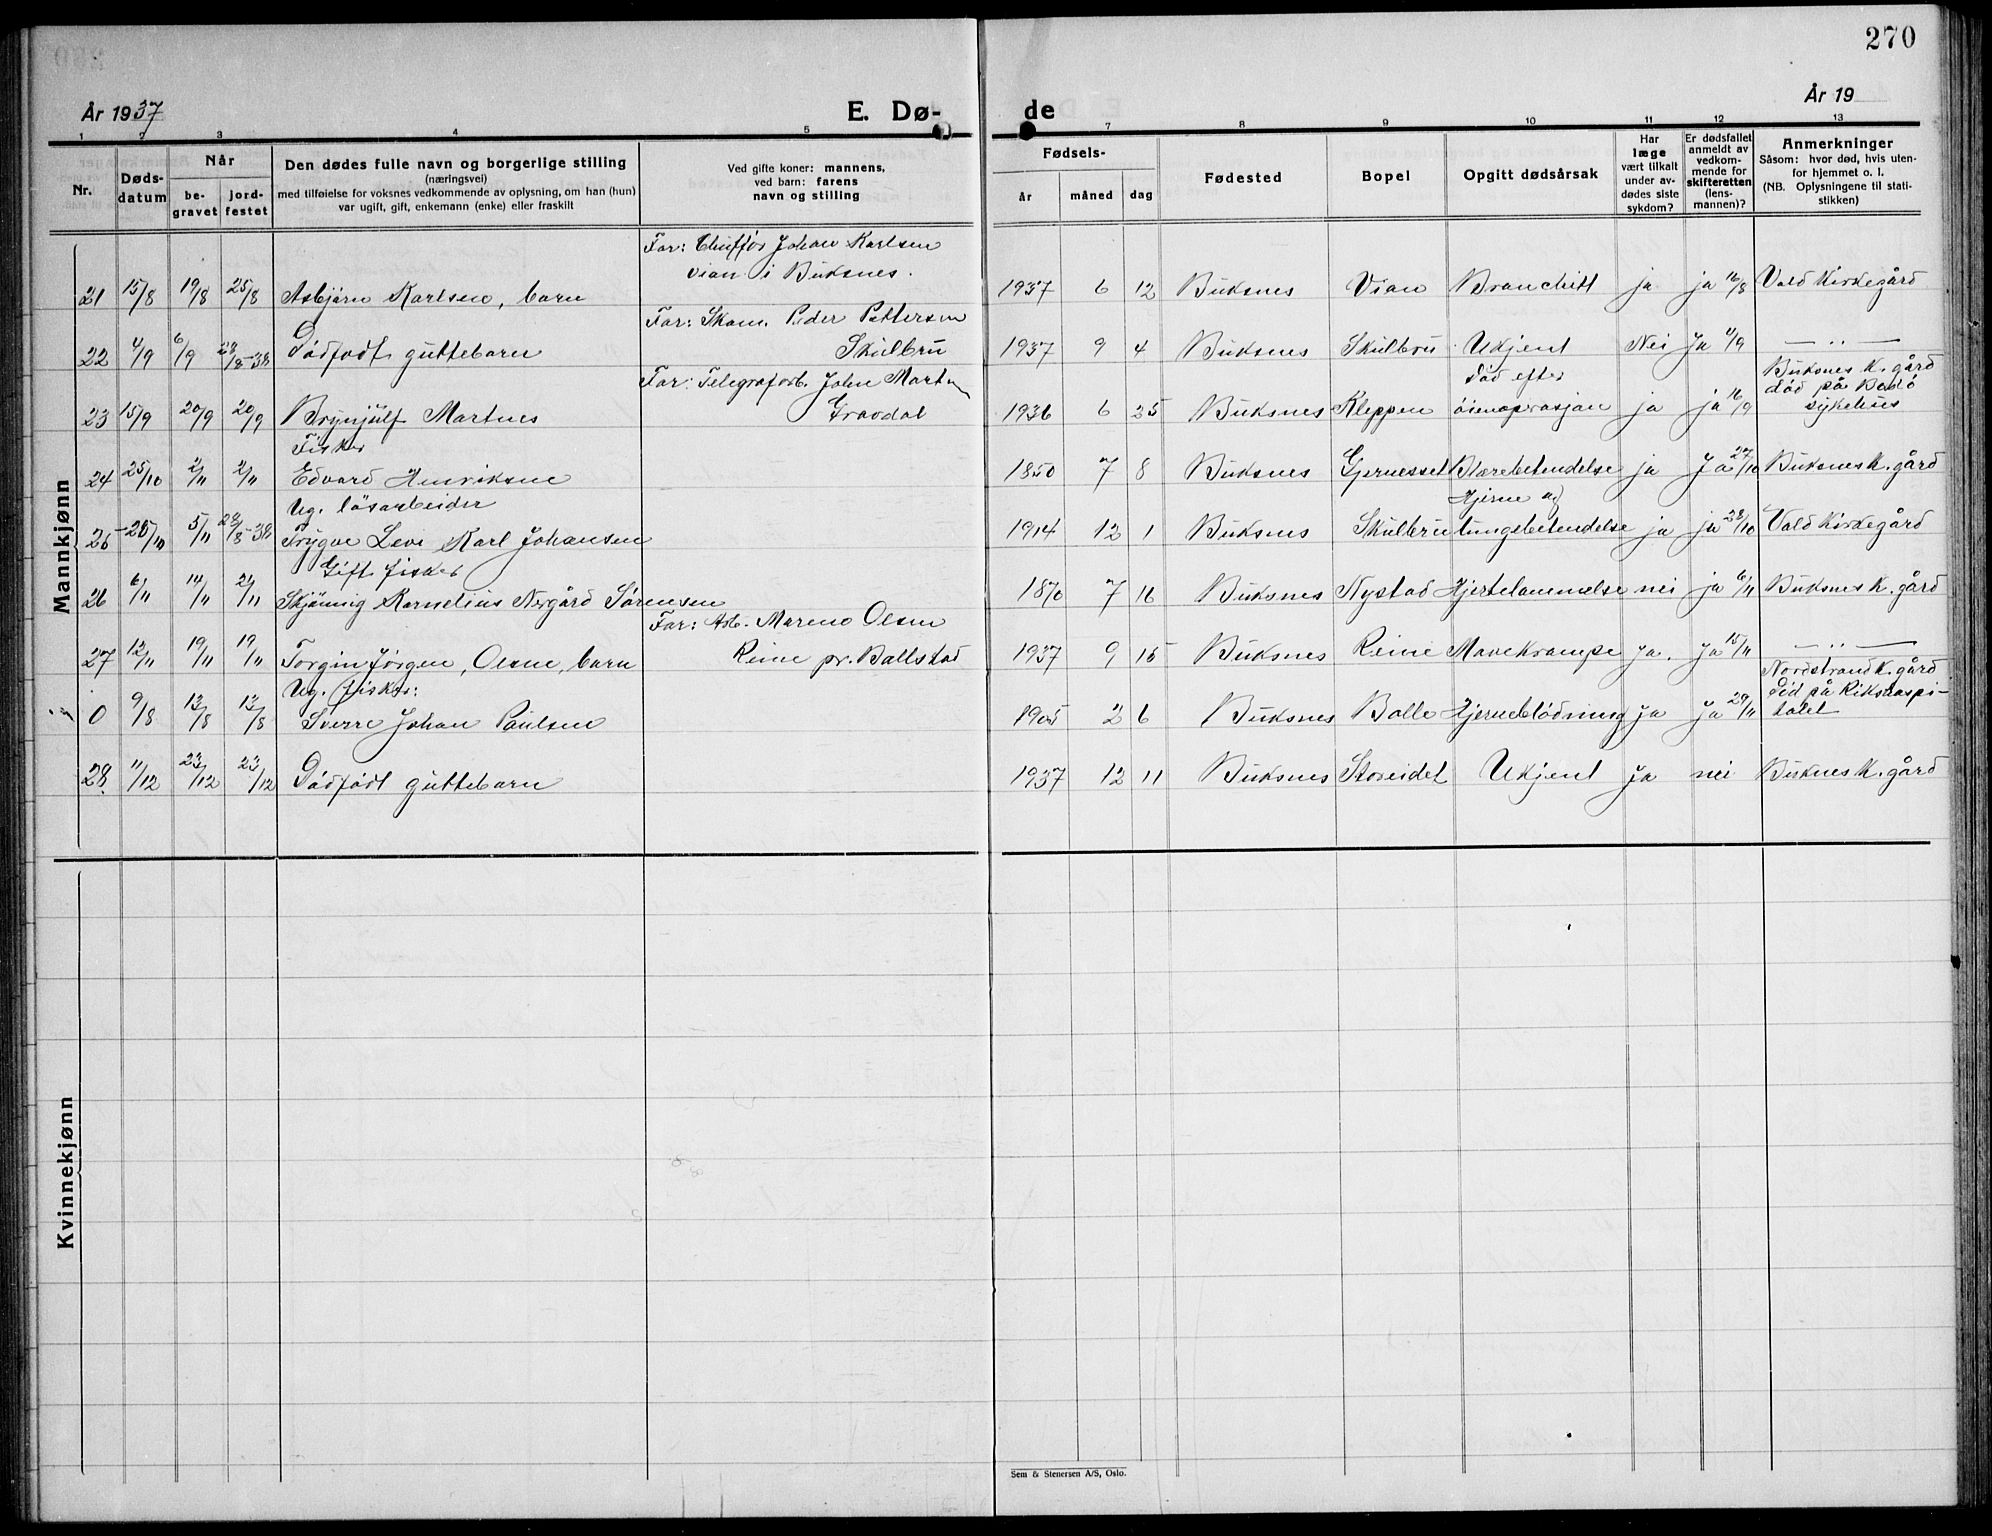 270
År 1937
E. Dø-
de
År 19
1 2 3 4 5 7 8 9 10 11 12 13
Nr.
Døds-
datum
Når
be-
gravet
jord-
festet
Den dødes fulle navn og borgerlige stilling
(næringsvei)
med tilføielse for voksnes vedkommende av oplysning, om han (hun)
var ugift, gift, enkemann (enke) eller fraskilt
Ved gifte koner: mannens,
ved barn: farens
navn og stilling
Fødsels-
år
måned
dag
Fødested
Bopel
Opgitt dødsårsak
Har
læge
vært tilkalt
under av-
dødes siste
sykdom?
Er dødsfallet
anmeldt av
vedkom-
mende for
skifteretten
(lens-
mannen)?
Anmerkninger
Såsom: hvor død, hvis uten-
for hjemmet o. l.
(NB. Oplysningene til stati-
stikken)
Mannkjønn
Far: Chuffør Johan Karlsen
Vian i Buksnes.
21 15/8 19/8 25/8 Asbjørn Karlsen, barn 1937 6 12 Buksnes Vian Bronchitt ja ja 16/8 Vold Kirkegård
Far: Skom. Peder Pettersen
Skulbru
22 4/9 6/9 28/8-38 Dødfødt guttebarn 1937 9 4 Buksnes Skulbru Ukjent Nei Ja 4/9 — " —
Far: Telegrafarb. John Martn
Gravdal
23 15/9 20/9 20/9 Brynjulf Martnes 1936 6 25 Buksnes Kleppen død efter
øienoprasjon ja ja 16/9 Buksnes K. gård
død på Bodø
sykehus
Fisker
24 25/10 2/11 2/11 Edvard Henriksen 1850 7 8 Buksnes Gjernesset Blærebetendelse ja Ja 27/10 Buksnes K. gård
Ug. løsarbeider
25 -25/10 5/11 28/8-38 Trygve Levi Karl Johansen 1914 12 1 Buksnes Skulbru Hjerne og
lungebetendelse ja ja 28/10 Vold Kirkegård
Gift fisker
26 6/11 14/11 21/11 Skjønnig Kornelius Nergård Sørensen 1870 7 16 Buksnes Nystad Hjertelammelse nei ja 6/11 Buksnes K. gård
Far: Arb. Mareno Olsen
Reine pr. Ballstad
27 12/11 19/11 19/11 Torgin Jørgen, Olsen, barn 1937 9 15 Buksnes Reine Mavekrampe Ja. Ja 15/11 — " —
Ug. fisker:
0 9/8 13/8 13/8 Sverre Johan Paulsen 1905 2 6 Buksnes Bolle Hjerneblødning Ja Ja 29/11 Nordstrand K. gård
Død på Rikshospi-
talet
28 11/12 23/12 23/12 Dødfødt guttebarn 1937 12 11 Buksnes Storeidet Ukjent Ja nei Buksnes K. gård
Kvinnekjønn
Sem & Stenersen A/S, Oslo.